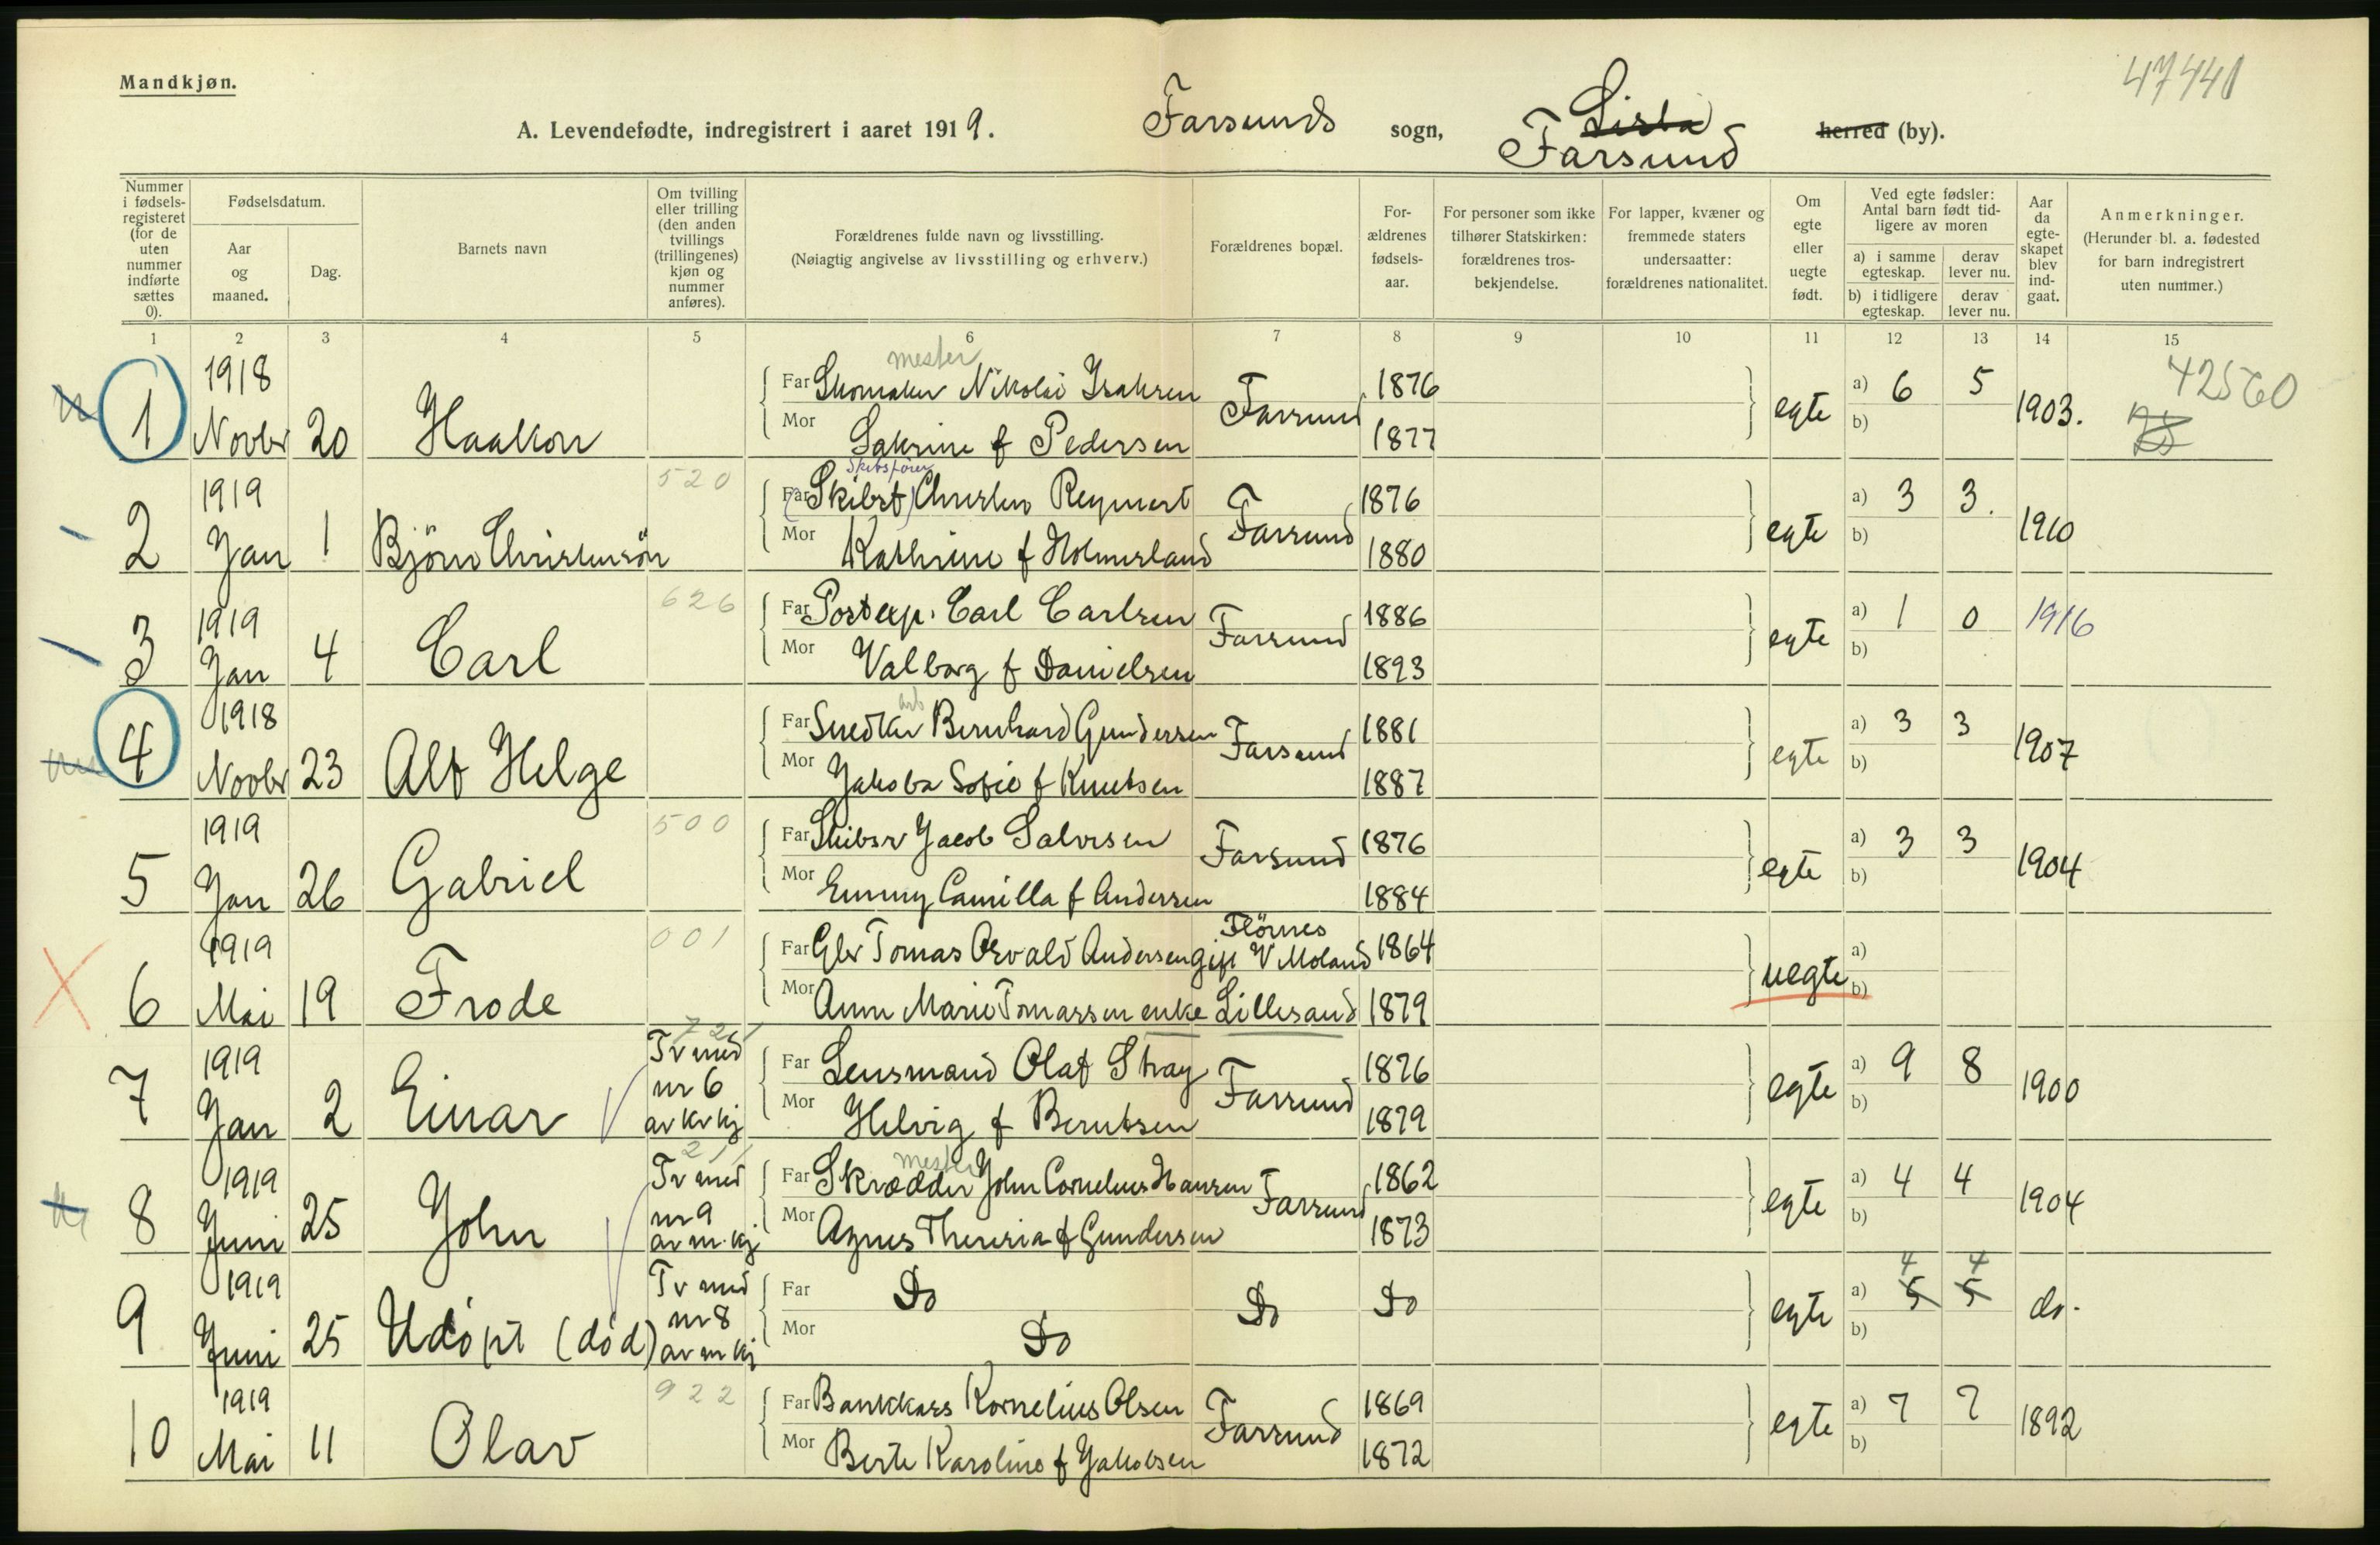 Mandkjøn.
47441
A. Levendefødte, indregistrert i aaret 1919. Farsunds sogn, Lista herred (by).
Farsund
Nummer i fødselsregisteret (for de uten nummer indførte sættes 0).
Fødselsdatum.
Aar og maaned.
Dag.
Barnets navn
Om tvilling eller trilling (den anden tvillings (trillingenes) kjøn og nummer anføres).
Forældrenes fulde navn og livsstilling.
(Nøiagtig angivelse av livsstilling og erhverv.)
Forældrenes bopæl.
Forældrenes fødselsaar.
For personer som ikke tilhører Statskirken: forældrenes trosbekjendelse.
For lapper, kvæner og fremmede staters undersaatter: forældrenes nationalitet.
Om egte eller uegte født.
Ved egte fødsler: Antal barn født tidligere av moren
a) i samme egteskap.
derav lever nu.
b) i tidligere egteskap.
derav lever nu.
Aar da egteskapet blev indgaat.
Anmerkninger.
(Herunder bl. a. fødested for barn indregistrert uten nummer.)
1 2 3 4 5 6 7 8 9 10 11 12 13 14 15
1 1918 Novbr 20 Haakon
mester
Far Skomaker Nikolai Isaksen Farsund 1876 egte a) 6 5 1903. 42560
Mor Sakrine f Pedersen 1877 b)
2 1919 Jan 1 Bjørn Christensøn 520
Skibsfører
Far (Skibsf) Christen Reymert F Farsund 1876 egte a) 3 3. 1910
Mor Kathrine f Holmersland 1880 b)
3 1919 Jan 4 Carl 626
Far Postexp. Carl Carlsen Farsund 1886 egte a) 1 0 1916
Mor Valborg f Danielsen 1893 b)
4 1918 Novbr 23 Alf Helge
arb
Far Snedker Bernhard Gundersen Farsund 1881 egte a) 3 3 1907
Mor Jakoba Sofie f Knutsen 1887 b)
5 1919 Jan 26 Gabriel 500
Far Skibsr Jacob Salvesen Farsund 1876 egte a) 3 3 1904
Mor Emmy Camilla f Andersen 1884 b)
6 1919 Mai 19 Frode 001
Flörnes
Far Tomas Osvald Andersen gift V Moland 1864 uegte a)
Mor Anne Marie Tomassen enke Lillesand 1879 b)
7 1919 Jan 2 Einar 721 Tv med nr 6 av kv kj
Far Lensmand Olaf Stray Farsund 1876 egte a) 9 8 1900
Mor Helvig f Berntsen 1879 b)
8 1919 Juni 25 John 211 Tv med nr 9 av m. kj
mester
Far Skrædder John Cornelius Hansen Farsund 1862 egte a) 4 4 1904
Mor Agnes Theresia f Gundersen 1873 b)
9 1919 Juni 25 Udøpt (død) Tv med nr 8 av m kj
4 4
Far Do Do Do egte a) 5 5 do.
Mor Do b)
10 1919 Mai 11 Olav 922
Far Bankkass Kornelius Olsen Farsund 1869 egte a) 7 7 1892
Mor Berte Karoline f Jakobsen 1872 b)